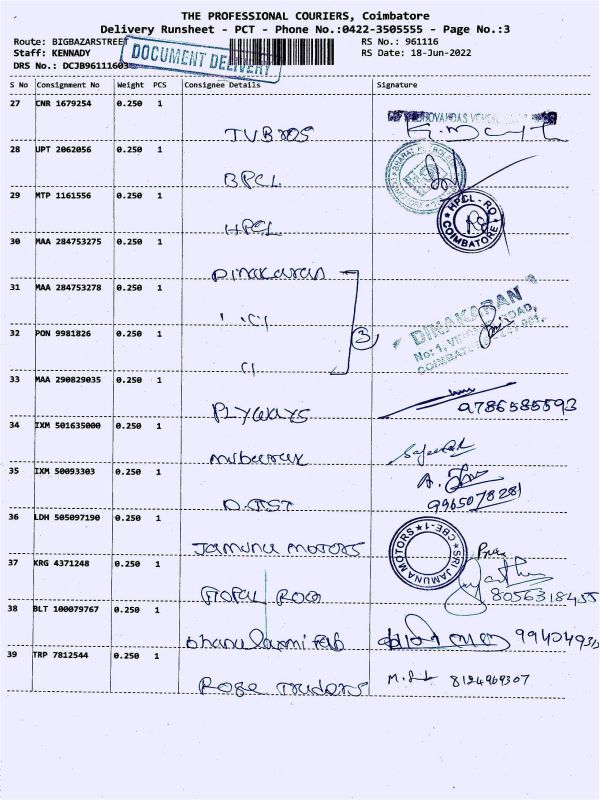 THE PROFESSIONAL COURIERS, Coimbatore
Delivery Runsheet - PCT - Phone No.:0422-3505555 - Page No.:3
Route: BIGBAZARSTREET RS No.: 961116
Staff: KENNADY RS Date: 18-Jun-2022
DOCUMENT DELIVERY
DRS No.: DCJB96111603
S No Consignment No Weight PCS Consignee Details Signature
27 CNR 1679254 0.250 1
TVBROS
28 UPT 2062056 0.250 1
BPCL
29 MTP 1161556 0.250 1
HPCL
HPCL - RO
COIMBATORE
30 MAA 284753275 0.250 1
Dinakaran
31 MAA 284753278 0.250 1
DINAKARAN
32 PON 9981826 0.250 1
3
33 MAA 290829035 0.250 1
PLYWAYS 9786585593
34 IXM 501635000 0.250 1
35 IXM 50093303 0.250 1
9965078281
36 LDH 505097190 0.250 1
Jamuna motors
SRI JAMUNA MOTORS
CBE-1
37 KRG 4371248 0.250 1
8056318455
38 BLT 100079767 0.250 1
Dhanulaxmi Fab
39 TRP 7812544 0.250 1
Rose Traders 8124969307